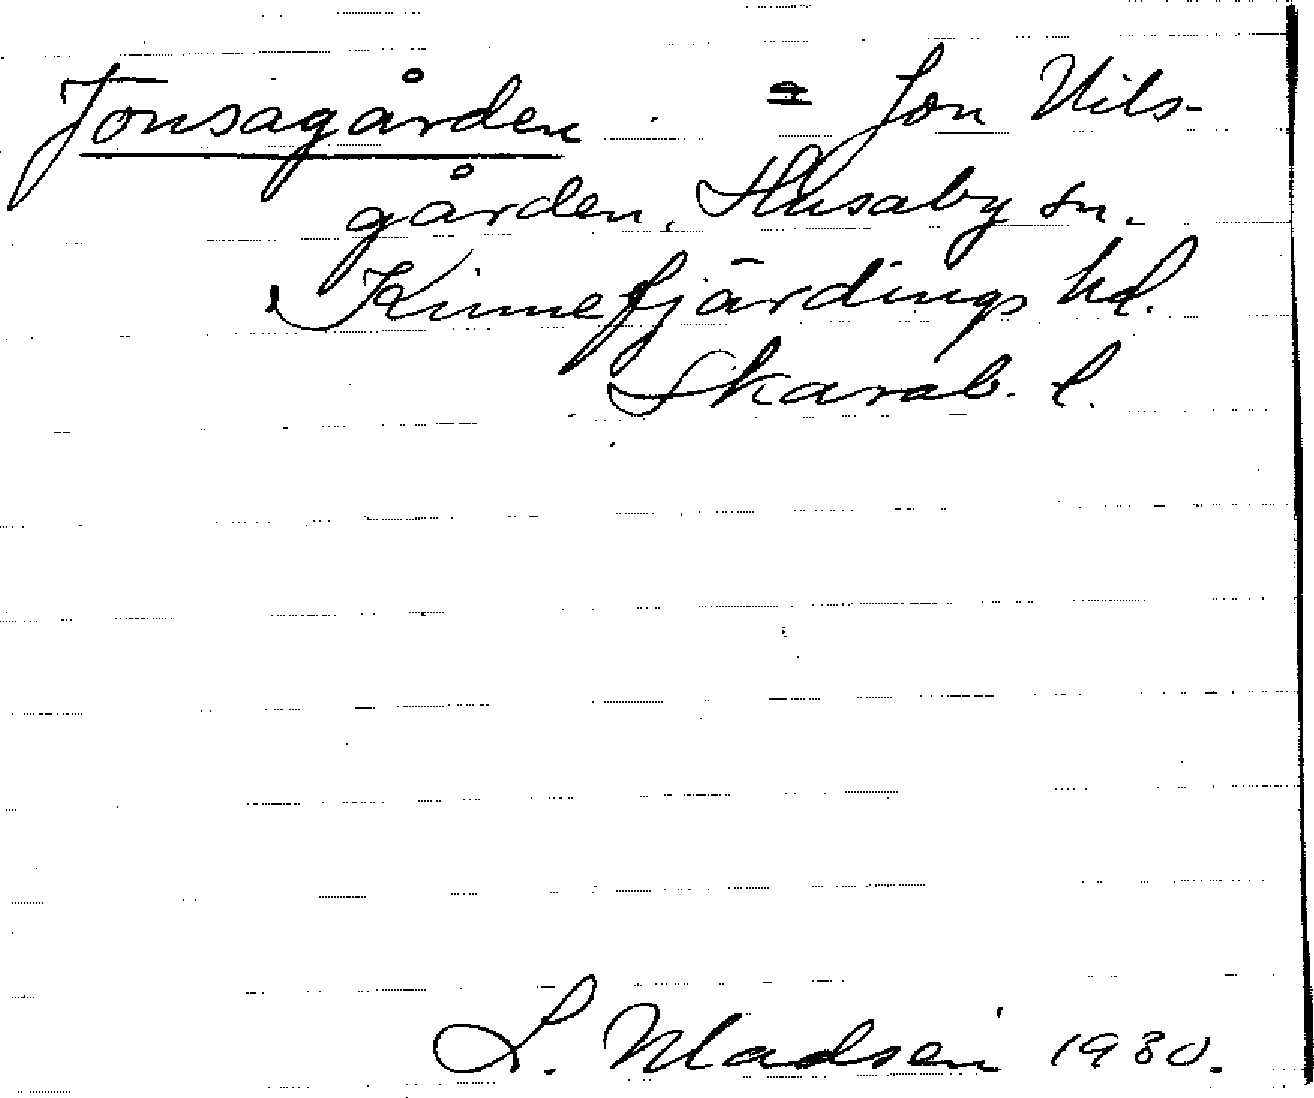 Jonsagården = Jon Nils-
gården, Husaby sn.
Kinnefjärdings hd.
Skarab. l.
L. Madsen 1930.